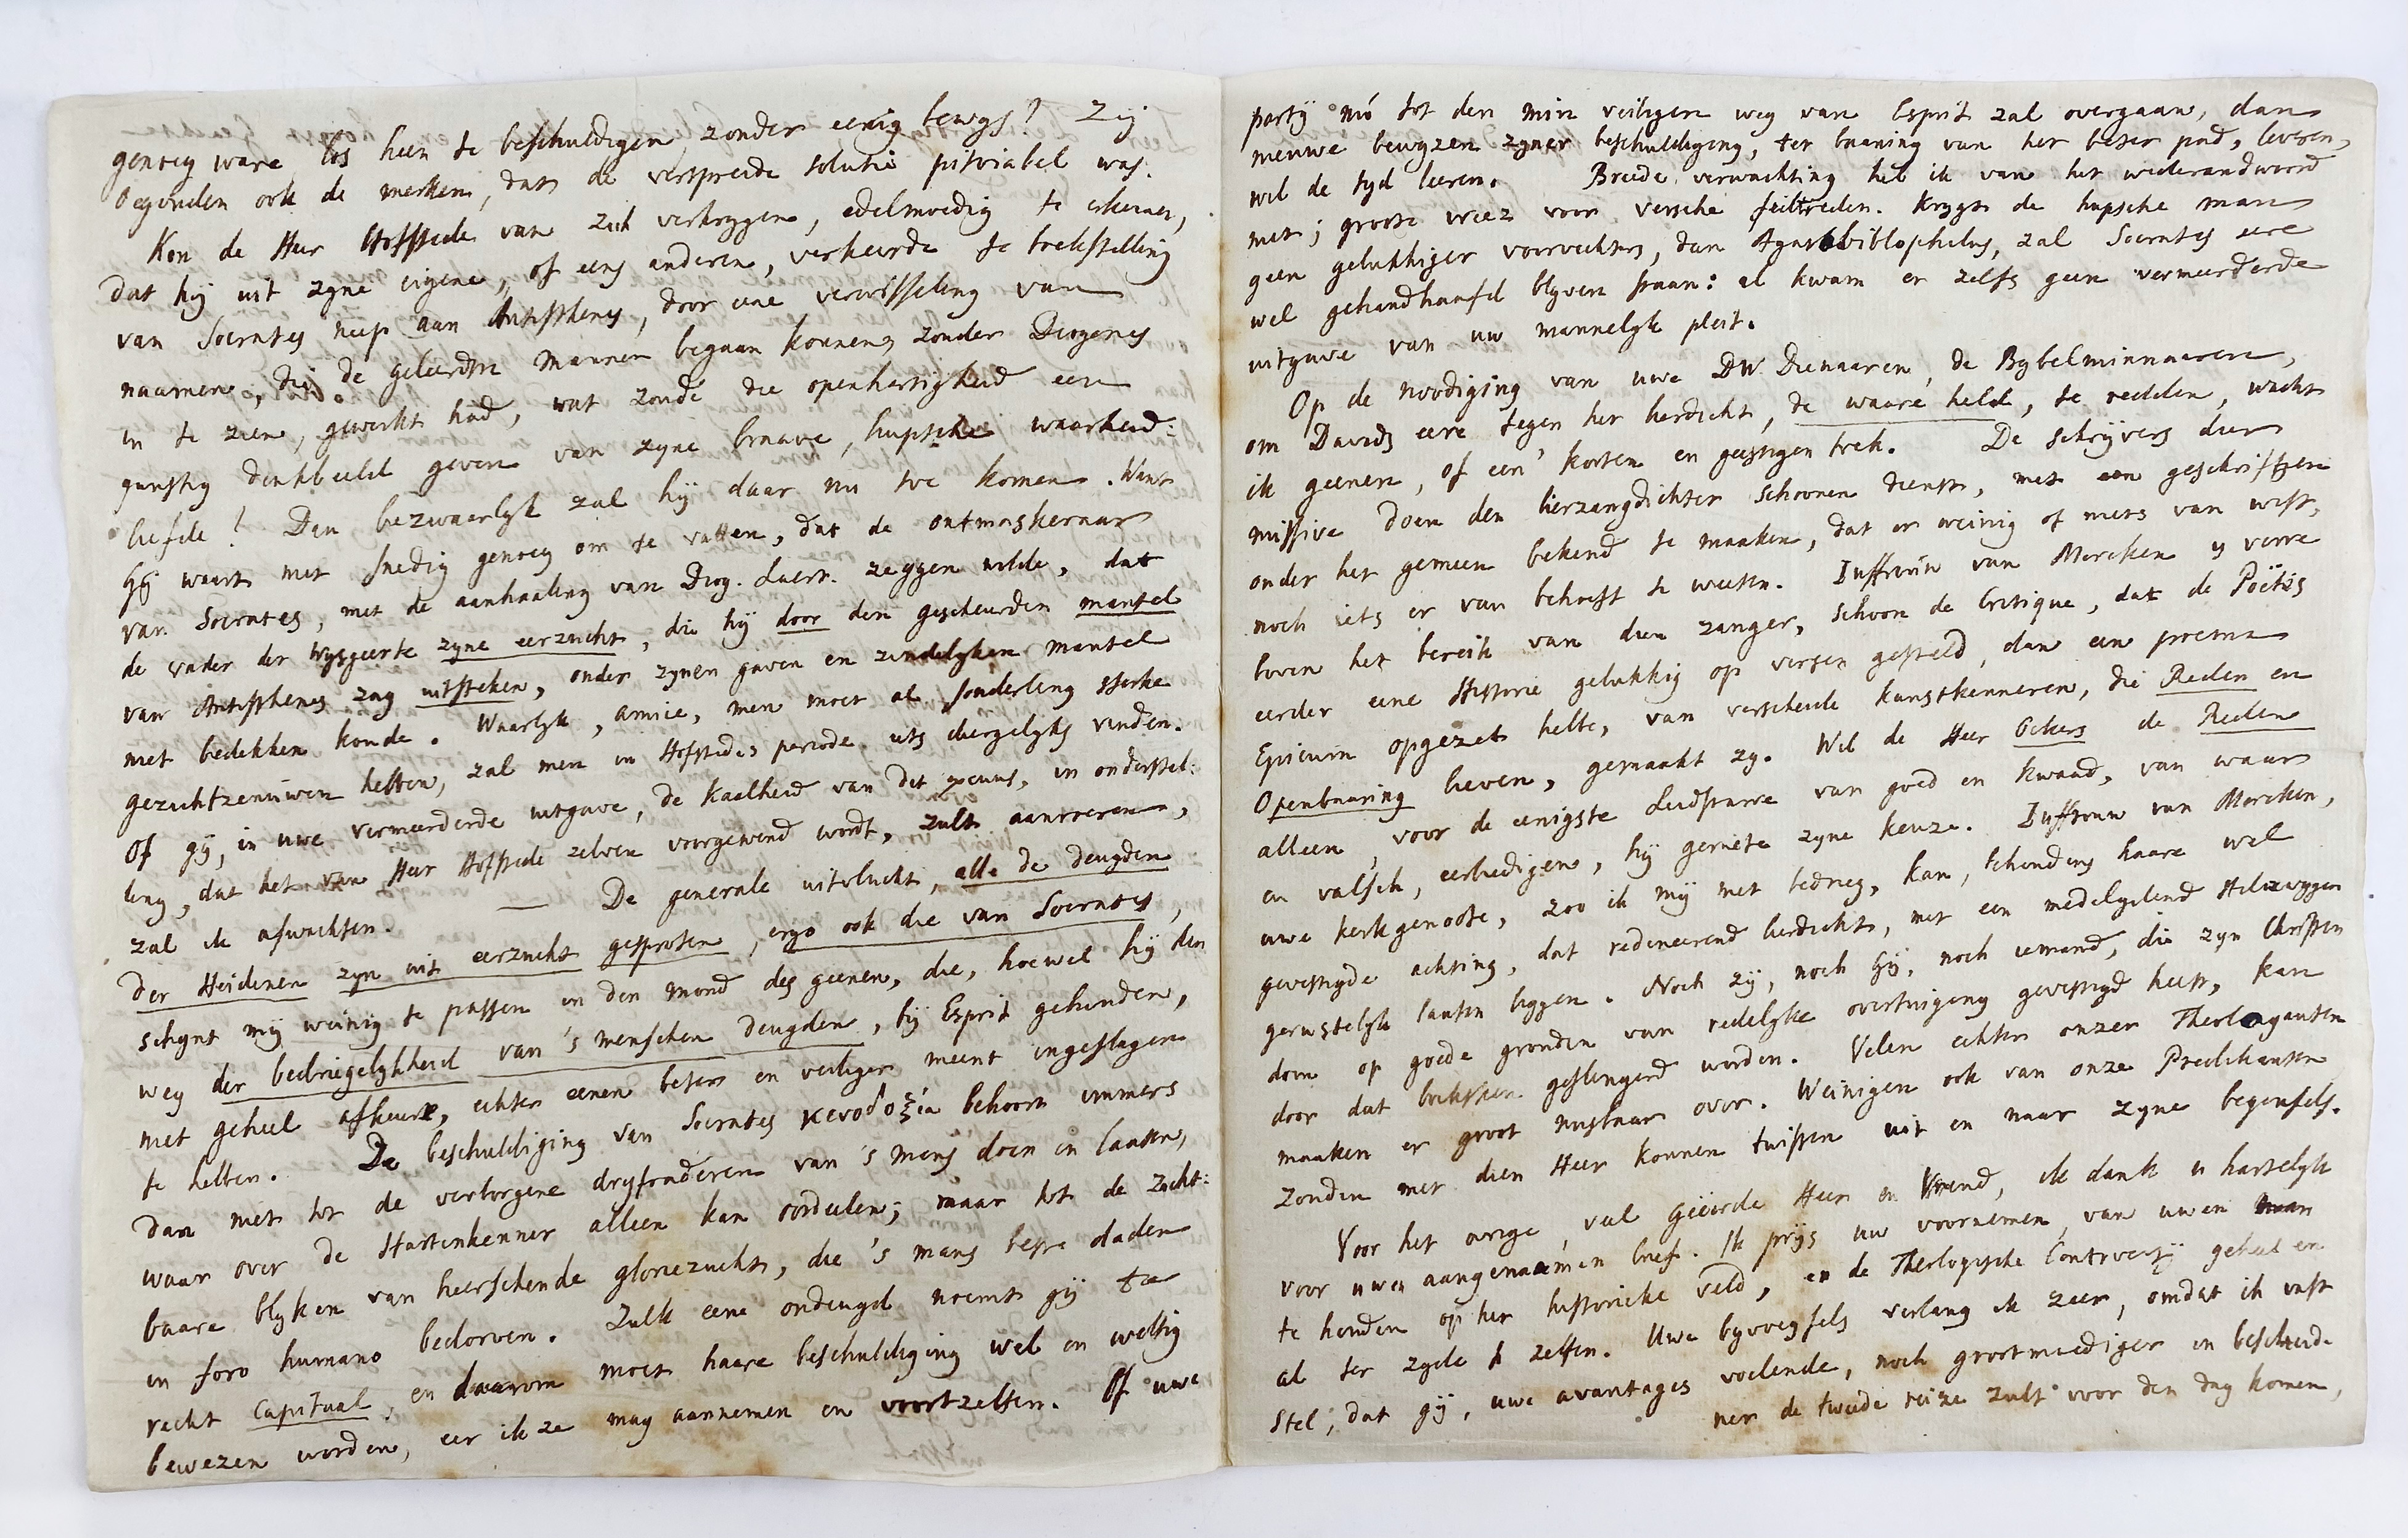 genoeg ware los heen te beschuldigen zonder eenig bewys! Zij
begonden ook de merken, dat de verspreide solutie pitoiabel was.
Kon de Heer Hofstede van zich verkrygen, edelmoedig te erkennen,
dat hij uit zyne eigene, of eens anderen, verkeerde te boekstelling
van Socrates neep aan Antisthenes, door eene verwisseling van
naamen, die de geleerdste mannen begaan konnen, zonder Diogenes
in te zien, gewerkt had, wat zoude die openhartigheid een
gunstig denkbeeld geven van zyne braave, hupsche waarheid:
liefde! Dan bezwaarlyk zal hij daar nu toe komen. Want
Gij waart niet snedig genoeg om te vatten, dat de ontmaskeraar
van Socrates, met de aanhaaling van Diog. Laert. zeggen wilde, dat
de vader der Wysgeerte zyne eerzucht, die hij door den gescheurden mantel
van Antisthenes zag uitsteken, onder zynen gaven en zindelyken mantel
niet bedekken konde. Waarlyk, amice, men moet al sonderling sterke
gezichtzenuwen hebben, zal men in Hofstedes periode iets diergelyks vinden.
Of gij, in uwe vermeerderde uitgave, de kaalheid van dit excuus, in onderstel:
ling, dat het van Heer Hofstede zelven voorgewend wordt, zult aanroeren,
zal ik afwachten. — De generale uitvlucht, alle de deugden
der Heidenen zyn uit eerzucht gesproten, ergo ook die van Socrates,
schynt mij weinig te passen in den mond des geenen, die, hoewel hij den
weg der bedriegelykheid van 's menschen deugden, bij Esprit gehouden,
niet geheel afkeurt, echter eenen beter en veiliger meent ingeslagen
te hebben. De beschuldiging van Socrates κενοδοξία behoort immers
dan niet tot de verborgene dryfraderen van 's mens doen en laaten,
waar over de Hartenkenner alleen kan oordeelen; maar tot de zicht:
baare blyken van heerschende gloriezucht, die 's mans beste daden
in foro humano bedorven. Zulk eene ondeugd noemt gij ter
recht Capitaal, en daarom moet haare beschuldiging wel en wettig
bewezen worden, eer ik ze mag aannemen en voortzetten. Of uwe
partij nú tot den min veiligen weg van Esprit zal overgaan, dan
nieuwe bewyzen zyner beschuldiging, ter baaning van het beter pad, leveren,
wil de tyd leeren. Breede verwachting heb ik van het wederandwoord
niet; groote vrees voor versche feiltreden. Krygt de hupsche man
geen gelukkiger voorvechters, dan Agathobiblophilus, zal Socrates eere
wel gehandhaafd blyven staan: al kwam er zelfs geen vermeerderde
uitgave van uw mannelyk pleit.
Op de noodiging van uwe DW. Dienaaren, de Bybelminnaaren,
om Davids eere tegen het herdicht, de waare held, te redden, wacht
ik geenen, of een' korten en geestigen trek. De schrijvers dier
missive doen den hierzangdichter schoonen dienst, met een geschrift
onder het gemeen bekend te maaken, dat er weinig of niets van wist,
noch iets er van behoeft te weeten. Juffrouw van Mercken is verre
boven het bereik van dien zanger, schoon de Critique, dat de Poëtes
eerder eene Historie gelukkig op versen gesteld, dan een poema
Epicum opgezet hebbe, van verscheide kunstkenneren, die Reden en
Openbaaring lieven, gemaakt zy. Wil de Heer Ockers de Reden
alleen, voor de eenigste Leidstarre van goed en kwaad, van waar
en valsch, eerbiedigen, hij geniete zyne keuze. Juffrouw van Mercken,
uwe kerkgenoote, zoo ik mij niet bedrieg, kan, behoudens haare wel
gevestigde achting, dat redeneerend herdicht, met een medelydend stilzwygen
gerustelyk laaten liggen. Noch zij, noch Gij, noch iemand, die zyn Christen
dom op goede gronden van redelyke overtuiging gevestigd heeft, kan
door dat boeksken geslingerd worden. Velen echter onzer Theologanten
maaken er groot misbaar over. Weinigen ook van onze Predikanten
zouden met dien Heer konnen twisten uit en naar zyne beginsels.
Voor het overige, veel Geëerde Heer en Vriend, ik dank u hartelyk
voor uwen aangenaamen brief. Ik prijs uw voornemen, van uwen man
te houden op het historieke veld, en de Theologische Controversij geheel en
al ter zyde te zetten. Uwe byvoegsels verlang ik zeer, omdat ik vast
stel, dat gij, uwe avantages voelende, noch grootmoediger en bescheide
ner de tweede reize zult voor den dag komen,